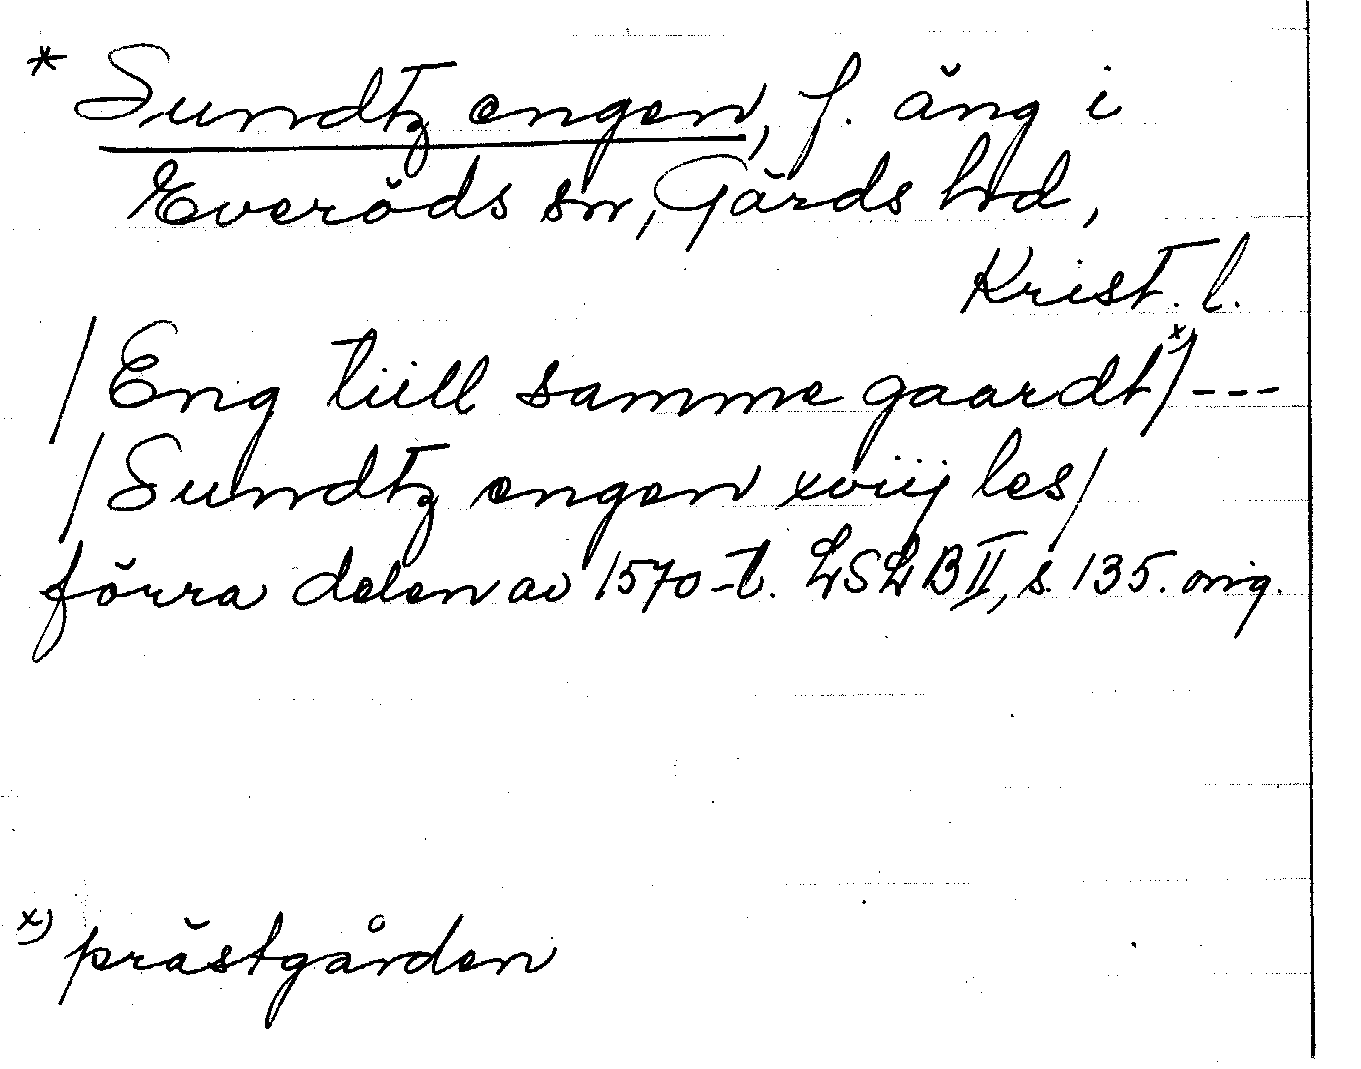 * Sundtz engen, f. äng i
Everöds sn, Gärds hd,
Krist. l.
/Eng tiill samme gaardt x)/---
/Sundtz engen xviij les/
förra delen av 1570-t. LSLB II, s. 135. orig.
x) prästgården